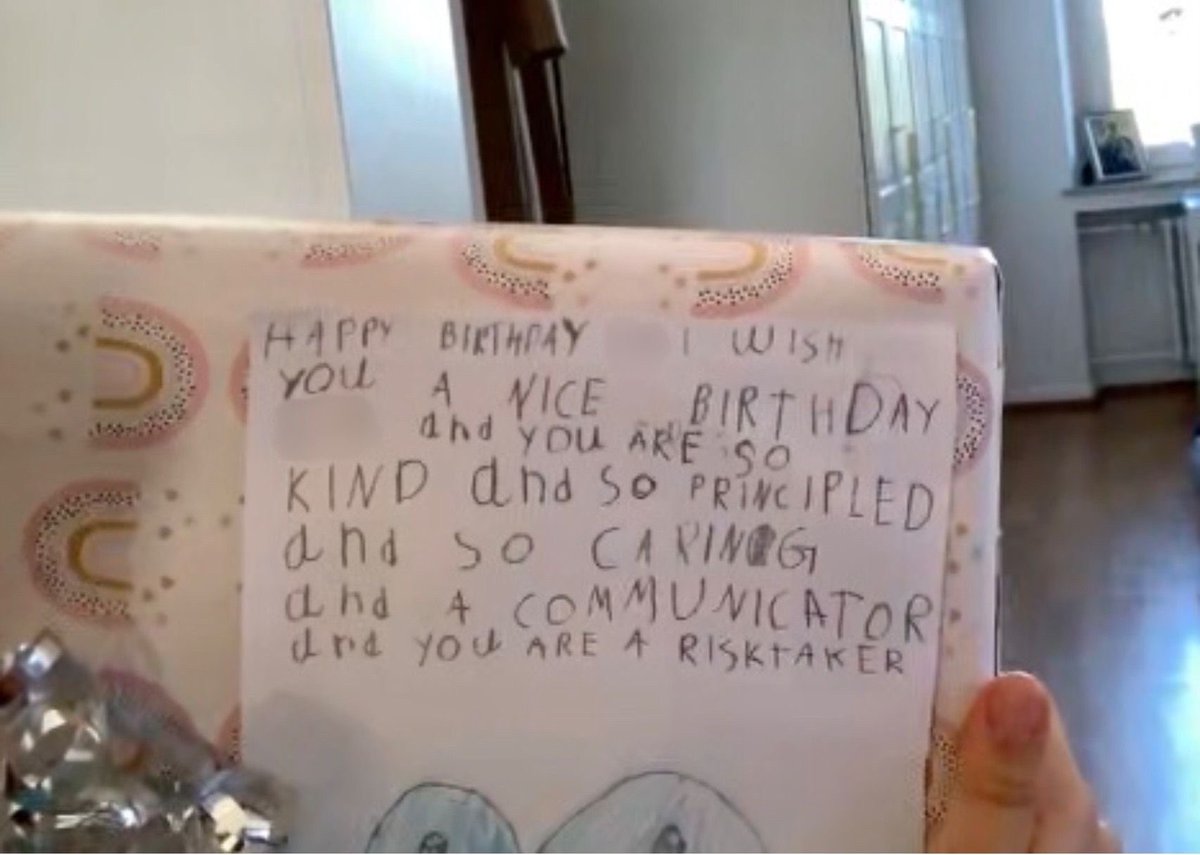 HAPPY BIRTHDAY I WISH
YOU A NICE BIRTHDAY
and YOU ARE SO
KIND and SO PRINCIPLED
and SO CARING
and A COMMUNICATOR
and YOU ARE A RISKTAKER